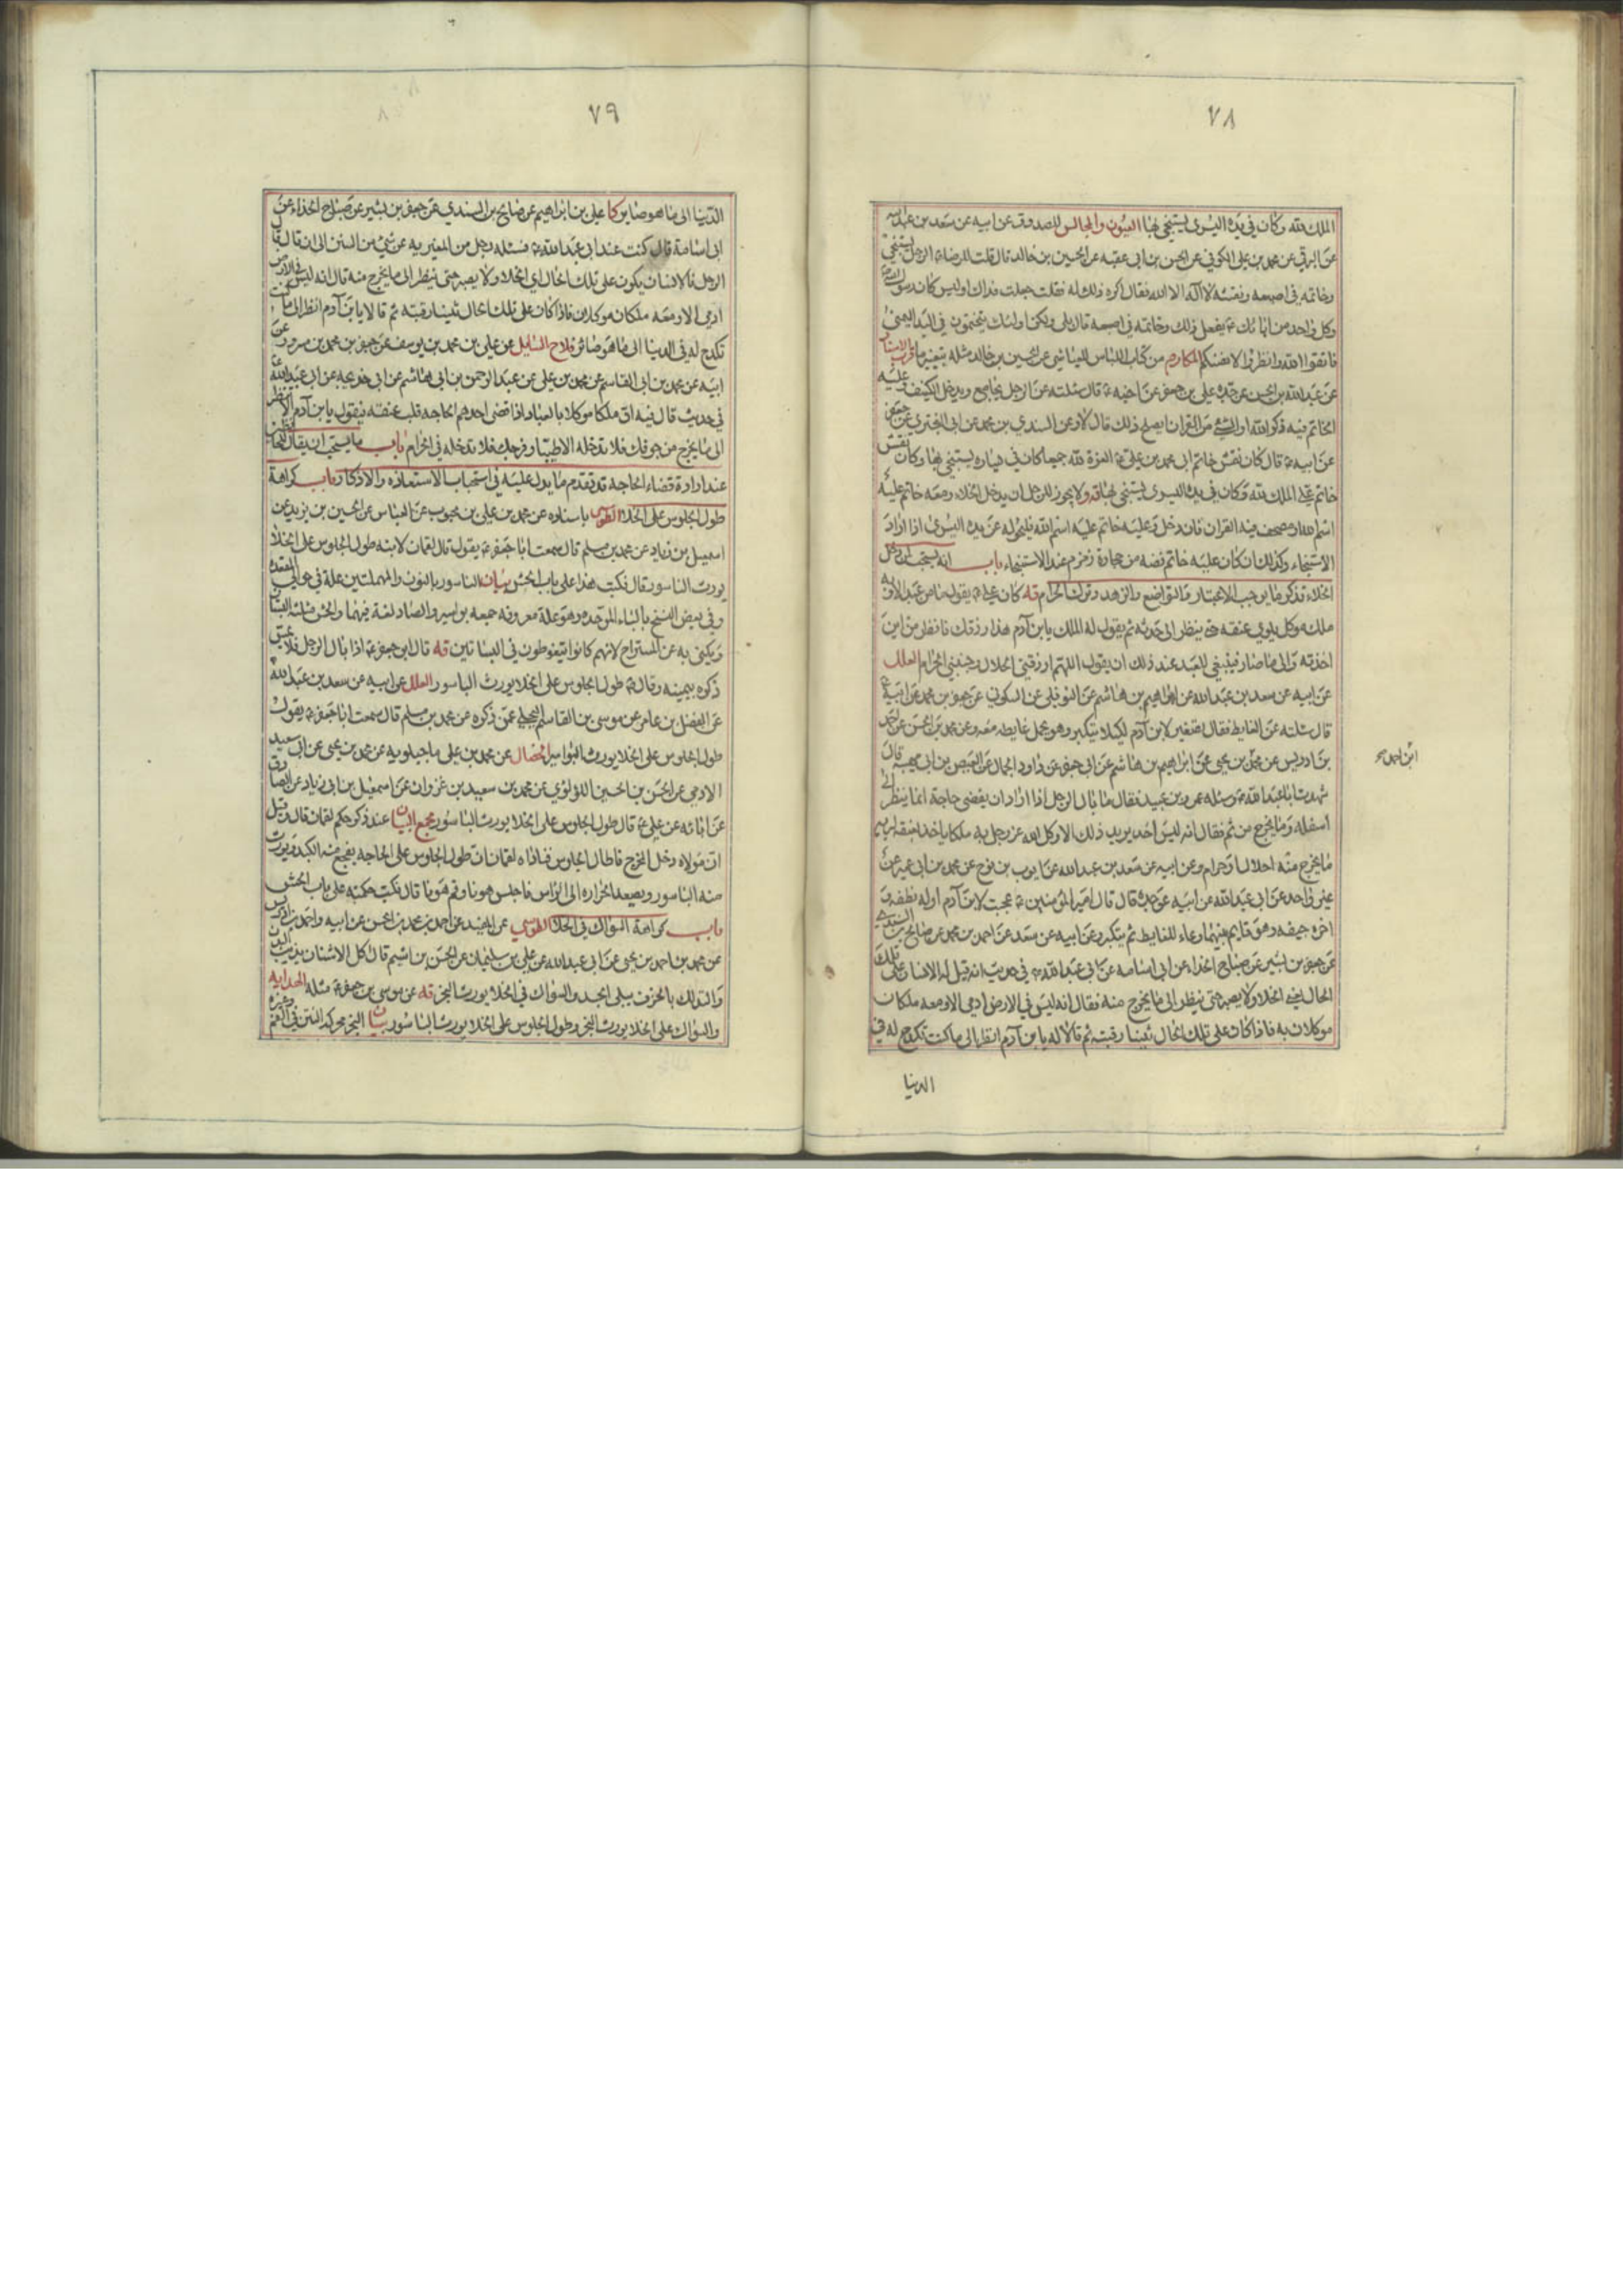 ٧٨
الملك لله وكان في يده اليسرى يستنجي بها العيون والمجالس للصدوق عن ابيه عن سعد بن عبد الله
عن البرقي عن محمد بن علي الكوفي عن الحسن بن ابي عقبه عن الحسين بن خالد قال قلت للرضاء الرجل يستنجي
وخاتمه في اصبعه ونقشه لا اله الا الله فقال اكره ذلك له فقلت جعلت فداك اوليس كان رسول الله
وكل واحد من ابائك ع يفعل ذلك وخاتمه في اصبعه قال بلى ولكن اولئك يتختمون في اليد اليمنى
فاتقوا الله وانظروا لانفسكم المكارم من كتاب اللباس للعياشي عن الحسين بن خالد مثله بتغيير ما قرب الاسناد
عن عبد الله بن الحسن عن جده علي بن جعفر عن اخيه ع قال سئلته عن الرجل يجامع ويدخل الكنيف وعليه
الخاتم فيه ذكر الله او الشئ من القران ايصلح ذلك قال لا وعن السندي بن محمد عن ابي البختري عن جعفر
عن ابيه ع قال كان نقش خاتم ابي محمد بن علي ع العزة لله جميعا كان في يساره يستنجي بها وكان نقش
خاتم علي الملك لله وكان في يده اليسرى يستنجي بها قه ولا يجوز للرجل ان يدخل الخلاء ومعه خاتم عليه
اسم الله او مصحف فيه القران فان دخل وعليه خاتم عليه اسم الله فليحوله عن يده اليسرى اذا اراد
الاستنجاء وكذلك ان كان عليه خاتم فصه من حجارة زمزم عند الاستنجاء باب انه يستحب لمن دخل
الخلاء تذكر ما يوجب الاعتبار والتواضع والزهد وترك الحرام قه كان علي ع يقول ما من عبد الا وبه
ملك موكل يلوي عنقه حتى ينظر الى حدثه ثم يقول له الملك يا بن آدم هذا رزقك فانظر من اين
اخذته والى ما صار فينبغي للعبد عند ذلك ان يقول اللهم ارزقني الحلال وجنبني الحرام العلل
عن ابيه عن سعد بن عبد الله عن ابراهيم بن هاشم عن النوفلي عن السكوني عن جعفر بن محمد عن ابيه ع
قال سئلته عن الغايط فقال تصغير لابن آدم لكيلا يتكبر وهو يحمل غايطه معه وعن محمد بن الحسن عن احمد
بن ادريس عن محمد بن يحيى عن ابراهيم بن هاشم عن ابي جعفر عن داود الجمال عن العيص بن ابي مهيبه قال
ابن احمد صح
شهدت ابا عبد الله ع وسئله عمرو بن عبيد فقال ما بال الرجل اذا اراد ان يقضي حاجة انما ينظر الى
اسفله وما يخرج من ثم فقال انه ليس احد يريد ذلك الا وكل الله عز وجل به ملكا ياخذ بعنقه ليريه
ما يخرج منه احلال او حرام وعن ابيه عن سعد بن عبد الله عن ايوب بن نوح عن محمد بن ابي عمير عن
غير واحد عن ابي عبد الله عن ابيه عن جده قال قال امير المؤمنين ع عجبت لابن آدم اوله نطفة و
اخره جيفه وهو قايم بينهما وعاء للغايط ثم يتكبر وعن ابيه عن سعد عن احمد بن محمد عن صالح بن السندي
عن جعفر بن بشير عن صباح الحذاء عن ابي اسامه عن ابي عبد الله ع في حديث انه قيل له الانسان على تلك
الحال يعني الخلاء ولا يصبر حتى ينظر الى ما يخرج منه فقال انه ليس في الارض ادمي الا ومعه ملكان
موكلان به فاذا كان على تلك الحال ثنيا رقبته ثم قالا له يا بن آدم انظر الى ما كنت تكدح له في
الدنيا
٧٩
الدنيا الى ما هو صاير كا علي بن ابراهيم عن صالح بن السندي عن جعفر بن بشير عن صباح الحذاء عن
ابي اسامة قال كنت عند ابي عبد الله ع فسئله رجل من المغيريه عن شئ من السنن الى ان قال فقال
الرجل فالانسان يكون على تلك الحال اي الخلاء ولا يصبر حتى ينظر الى ما يخرج منه قال انه ليس في الارض
ادمي الا ومعه ملكان موكلان فاذا كان على تلك الحال ثنيا رقبته ثم قالا يا بن آدم انظر الى ما كنت
تكدح له في الدنيا الى ما هو صائر فلاح السايل عن علي بن محمد بن يوسف عن جعفر بن محمد بن مسرور عن
ابيه عن محمد بن ابي القاسم عن محمد بن علي عن عبد الرحمن بن ابي هاشم عن ابي خديجه عن ابي عبد الله ع
في حديث قال فيه ان ملكا موكلا بالعباد اذا قضى احدهم الحاجه قلب عنقه فيقول يا بن آدم الا تنظر
الى ما يخرج من جوفك فلا تدخله الا طيبا وفرجك فلا تدخله في الحرام باب ما يستحب ان يقال
عند ارادة قضاء الحاجه قد تقدم ما يدل عليه في استحباب الاستعاذه والاذكار باب كراهة
طول الجلوس على الخلاء الطوسي باسناده عن محمد بن علي بن محبوب عن العباس عن الحسين بن يزيد عن
اسمعيل بن زياد عن محمد بن مسلم قال سمعت ابا جعفر ع يقول قال لقمان لابنه طول الجلوس على الخلا
يورث الناسور قال فكتب هذا على باب الحش بيان الناسور بالنون والمهملتين علة في حوالي المقعده
وفي بعض النسخ بالباء الموحده وهو علة معروفه جمعه بواسير والصاد لغة فيهما والحش مثلثه البستان
ويكنى به عن المستراح لانهم كانوا يتغوطون في البساتين قه قال ابي جعفر ع اذا بال الرجل فلا يمس
ذكره بيمينه وقال ع طول الجلوس على الخلا يورث الباسور العلل عن ابيه عن سعد بن عبد الله
عن الفضل بن عامر عن موسى بن القاسم البجلي عمن ذكره عن محمد بن مسلم قال سمعت ابا جعفر ع يقول
طول الجلوس على الخلا يورث البواسير الخصال عن محمد بن علي ماجيلويه عن محمد بن يحيى عن ابي سعيد
الادمي عن الحسن بن الحسين اللؤلؤي عن محمد بن سعيد بن غزوان عن اسمعيل بن ابي زياد عن الصادق
عن ابائه عن علي ع قال طول الجلوس على الخلا يورث الباسور مجمع البيان عند ذكر حكم لقمان قال وقيل
ان مولاه دخل المخرج فاطال الجلوس فناداه لقمان ان طول الجلوس على الحاجه يفجع منه الكبد ويورث
منه الباسور ويصعد الحراره الى الراس فاجلس هونا وقم هونا قال فكتب حكمته على باب الحش
باب كراهة السواك في الخلا الطوسي عن المفيد عن احمد بن محمد بن الحسن عن ابيه واحمد بن ادريس
عن محمد بن احمد بن يحيى عن ابي عبد الله عن علي بن سليمان عن الحسن بن اشيم قال اكل الاشنان يذيب البدن
والتدلك بالخزف يبلي الجسد والسواك في الخلا يورث البخر قه عن موسى بن جعفر ع مثله الهدايه
والسواك على الخلا يورث البخر وطول الجلوس على الخلا يورث الباسور بيان البخر محركه النتن في الفم وغيره